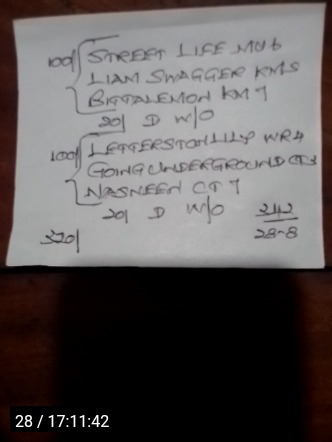 100/ STREET LIFE MU6
LIAM SWAGGER KMS
BITTALEMON KM7
20/ D W/O
100/ LETTERSTONLILY WR4
GOINGUNDERGROUND CT3
NASNEEN CT7
20/ D W/O
342
320/
28-8
28 / 17:11:42